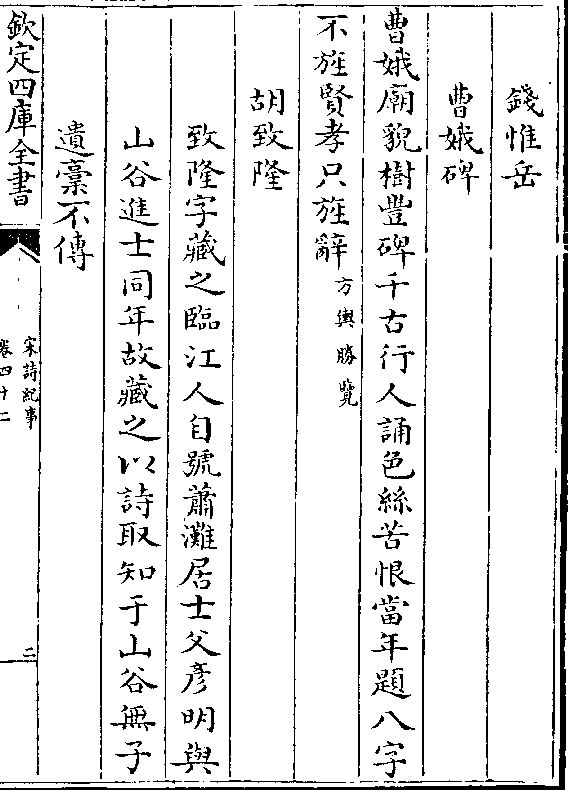 錢惟岳
曹娥碑
曹娥廟貌樹豐碑千古行人誦色絲苦恨當年題八字
不旌賢孝只旌辭方輿勝覽
胡致隆
致隆字藏之臨江人自號蕭灘居士父彦明與
山谷進士同年故藏之以詩取知于山谷無子
遺稾不傳
欽定四庫全書
宋詩紀事
卷四十二
二